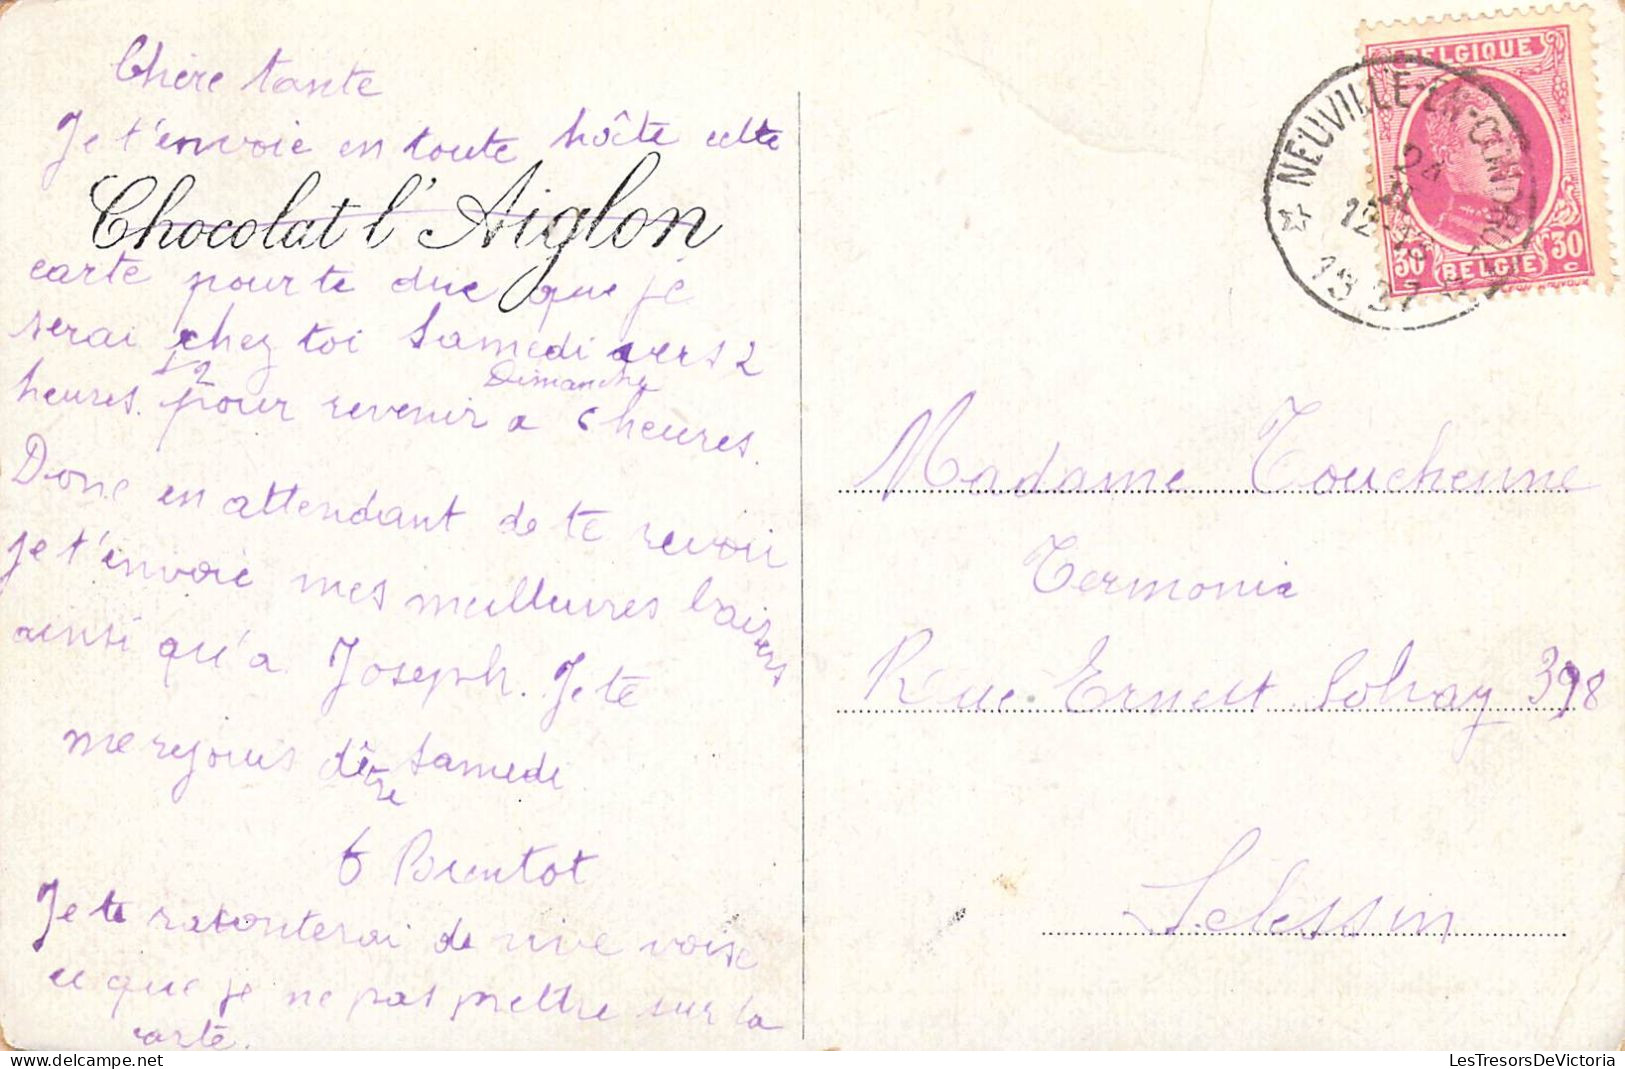 Chère tante
Je t'envoie en toute hôte cette
Chocolat l'Aiglon
carte pour te dire que je
serai chez toi Samedi vers 2
heures 1/2 pour revenir Dimanche a 6 heures.
Donc en attendant de te revoir
je t'envoie mes meilleures baisers
ainsi qu'a Joseph. Je te
me rejouis dêtre Samedi
Bientot
Je te raconterai de vive voise
ce que je ne pas mettre sur la
carte.
BELGIQUE
30 c 30 c
BELGIE
NEUVILLE-EN-CONDROZ
24
12
1927
Madame Toucheunne
Termonia
Rue Ernest Solvay 398
Sclessin
LesTresorsDeVictoria